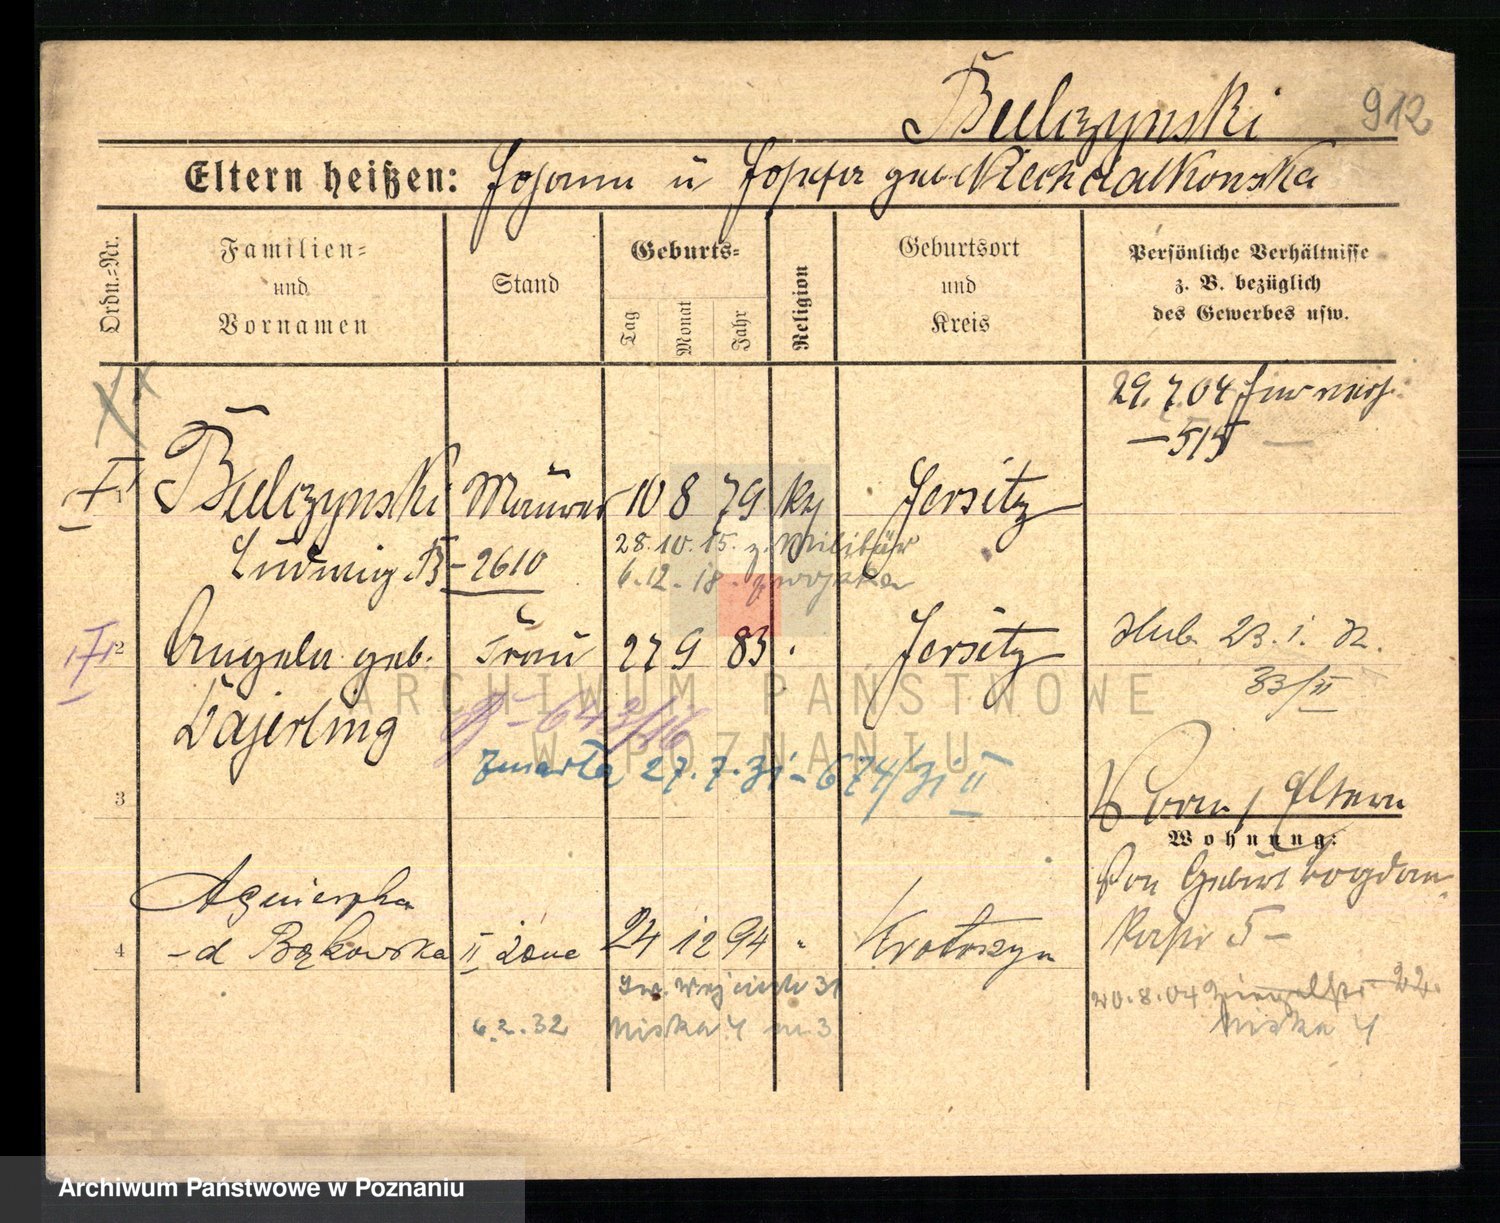 Bulczynski 912
Eltern heißen: Johann u Josefa geb.
Ordn.=Nr.
Familien=
und
Vornamen
Stand
Geburts=
Tag
Monat
Jahr
Religion
Geburtsort
und
Kreis
Persönliche Verhältnisse
z. B. bezüglich
des Gewerbes usw.
29.7.04
— 515 —
1 Bulczynski Maurer 10 8 79 Jersitz
Ludwig B-2610
28.10.15. z. Militär
6.12.18. z wojska
2 Angela geb. Frau 27 9 83 Jersitz
Bajerling
ślub 23.1.32.
33/II
B-643/16
zmarła 27.7.31-674/31 II
3
Eltern
Wohnung:
Von Geburt Bogdan-
5 -
Agnieszka
4 -d Bąkowska II żona 24 12 94 " Krotoszyn
31
6.2.32 Niska 4 m. 3
20.8.04 22.
Niska 4
ARCHIWUM PAŃSTWOWE
W POZNANIU
Archiwum Państwowe w Poznaniu